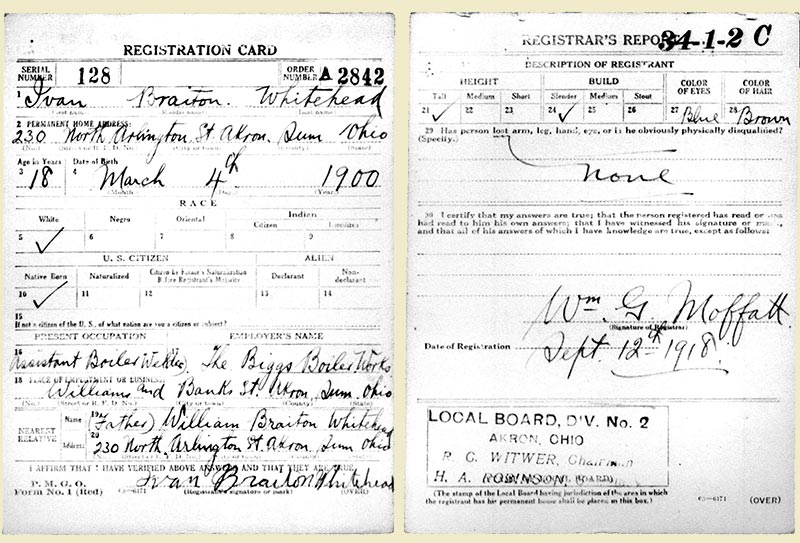 REGISTRATION CARD
SERIAL NUMBER 128 ORDER NUMBER A 2842
1 Ivan Braiton Whitehead
First name Middle name Last name
2 PERMANENT HOME ADDRESS:
230 North Arlington St Akron Sum Ohio
(No.) (Street or R. F. D. No.) (City or town) (County) (State)
Age in Years Date of Birth
3 18 4 March 4th 1900
(Month) (Day) (Year)
RACE
White Negro Oriental Indian
Citizen Noncitizen
5 ✓ 6 7 8 9
U. S. CITIZEN ALIEN
Native Born Naturalized Citizen by Father's Naturalization Before Registrant's Majority Declarant Non-declarant
10 ✓ 11 12 13 14
15
If not a citizen of the U. S., of what nation are you a citizen or subject?
PRESENT OCCUPATION EMPLOYER'S NAME
16 Assistant Boiler Welder 17 The Biggs Boiler Works
18 PLACE OF EMPLOYMENT OR BUSINESS:
Williams and Banks St. Akron Sum Ohio
(No.) (Street or R. F. D. No.) (City or town) (County) (State)
NEAREST RELATIVE
Name 19 (Father) William Braiton Whitehead
Address 20 230 North Arlington St. Akron Sum Ohio
I AFFIRM THAT I HAVE VERIFIED ABOVE ANSWERS AND THAT THEY ARE TRUE
P. M. G. O.
Form No. 1 (Red) Ivan Braiton Whitehead
(Registrant's signature or mark) (OVER)
REGISTRAR'S REPORT 34-1-2 C
DESCRIPTION OF REGISTRANT
HEIGHT BUILD COLOR OF EYES COLOR OF HAIR
Tall Medium Short Slender Medium Stout
21 ✓ 22 23 24 ✓ 25 26 27 Blue 28 Brown
29 Has person lost arm, leg, hand, eye, or is he obviously physically disqualified?
(Specify.)
None
30 I certify that my answers are true; that the person registered has read or has
had read to him his own answers; that I have witnessed his signature or mark,
and that all of his answers of which I have knowledge are true, except as follows:
Wm. G. Moffatt
(Signature of Registrar)
Date of Registration Sept 12th 1918
LOCAL BOARD, DIV. No. 2
AKRON, OHIO
R. C. WITWER, Chairman
H. A. ROBINSON
(STAMP OF LOCAL BOARD)
(The stamp of the Local Board having jurisdiction of the area in which
the registrant has his permanent home shall be placed in this box.)
(OVER)